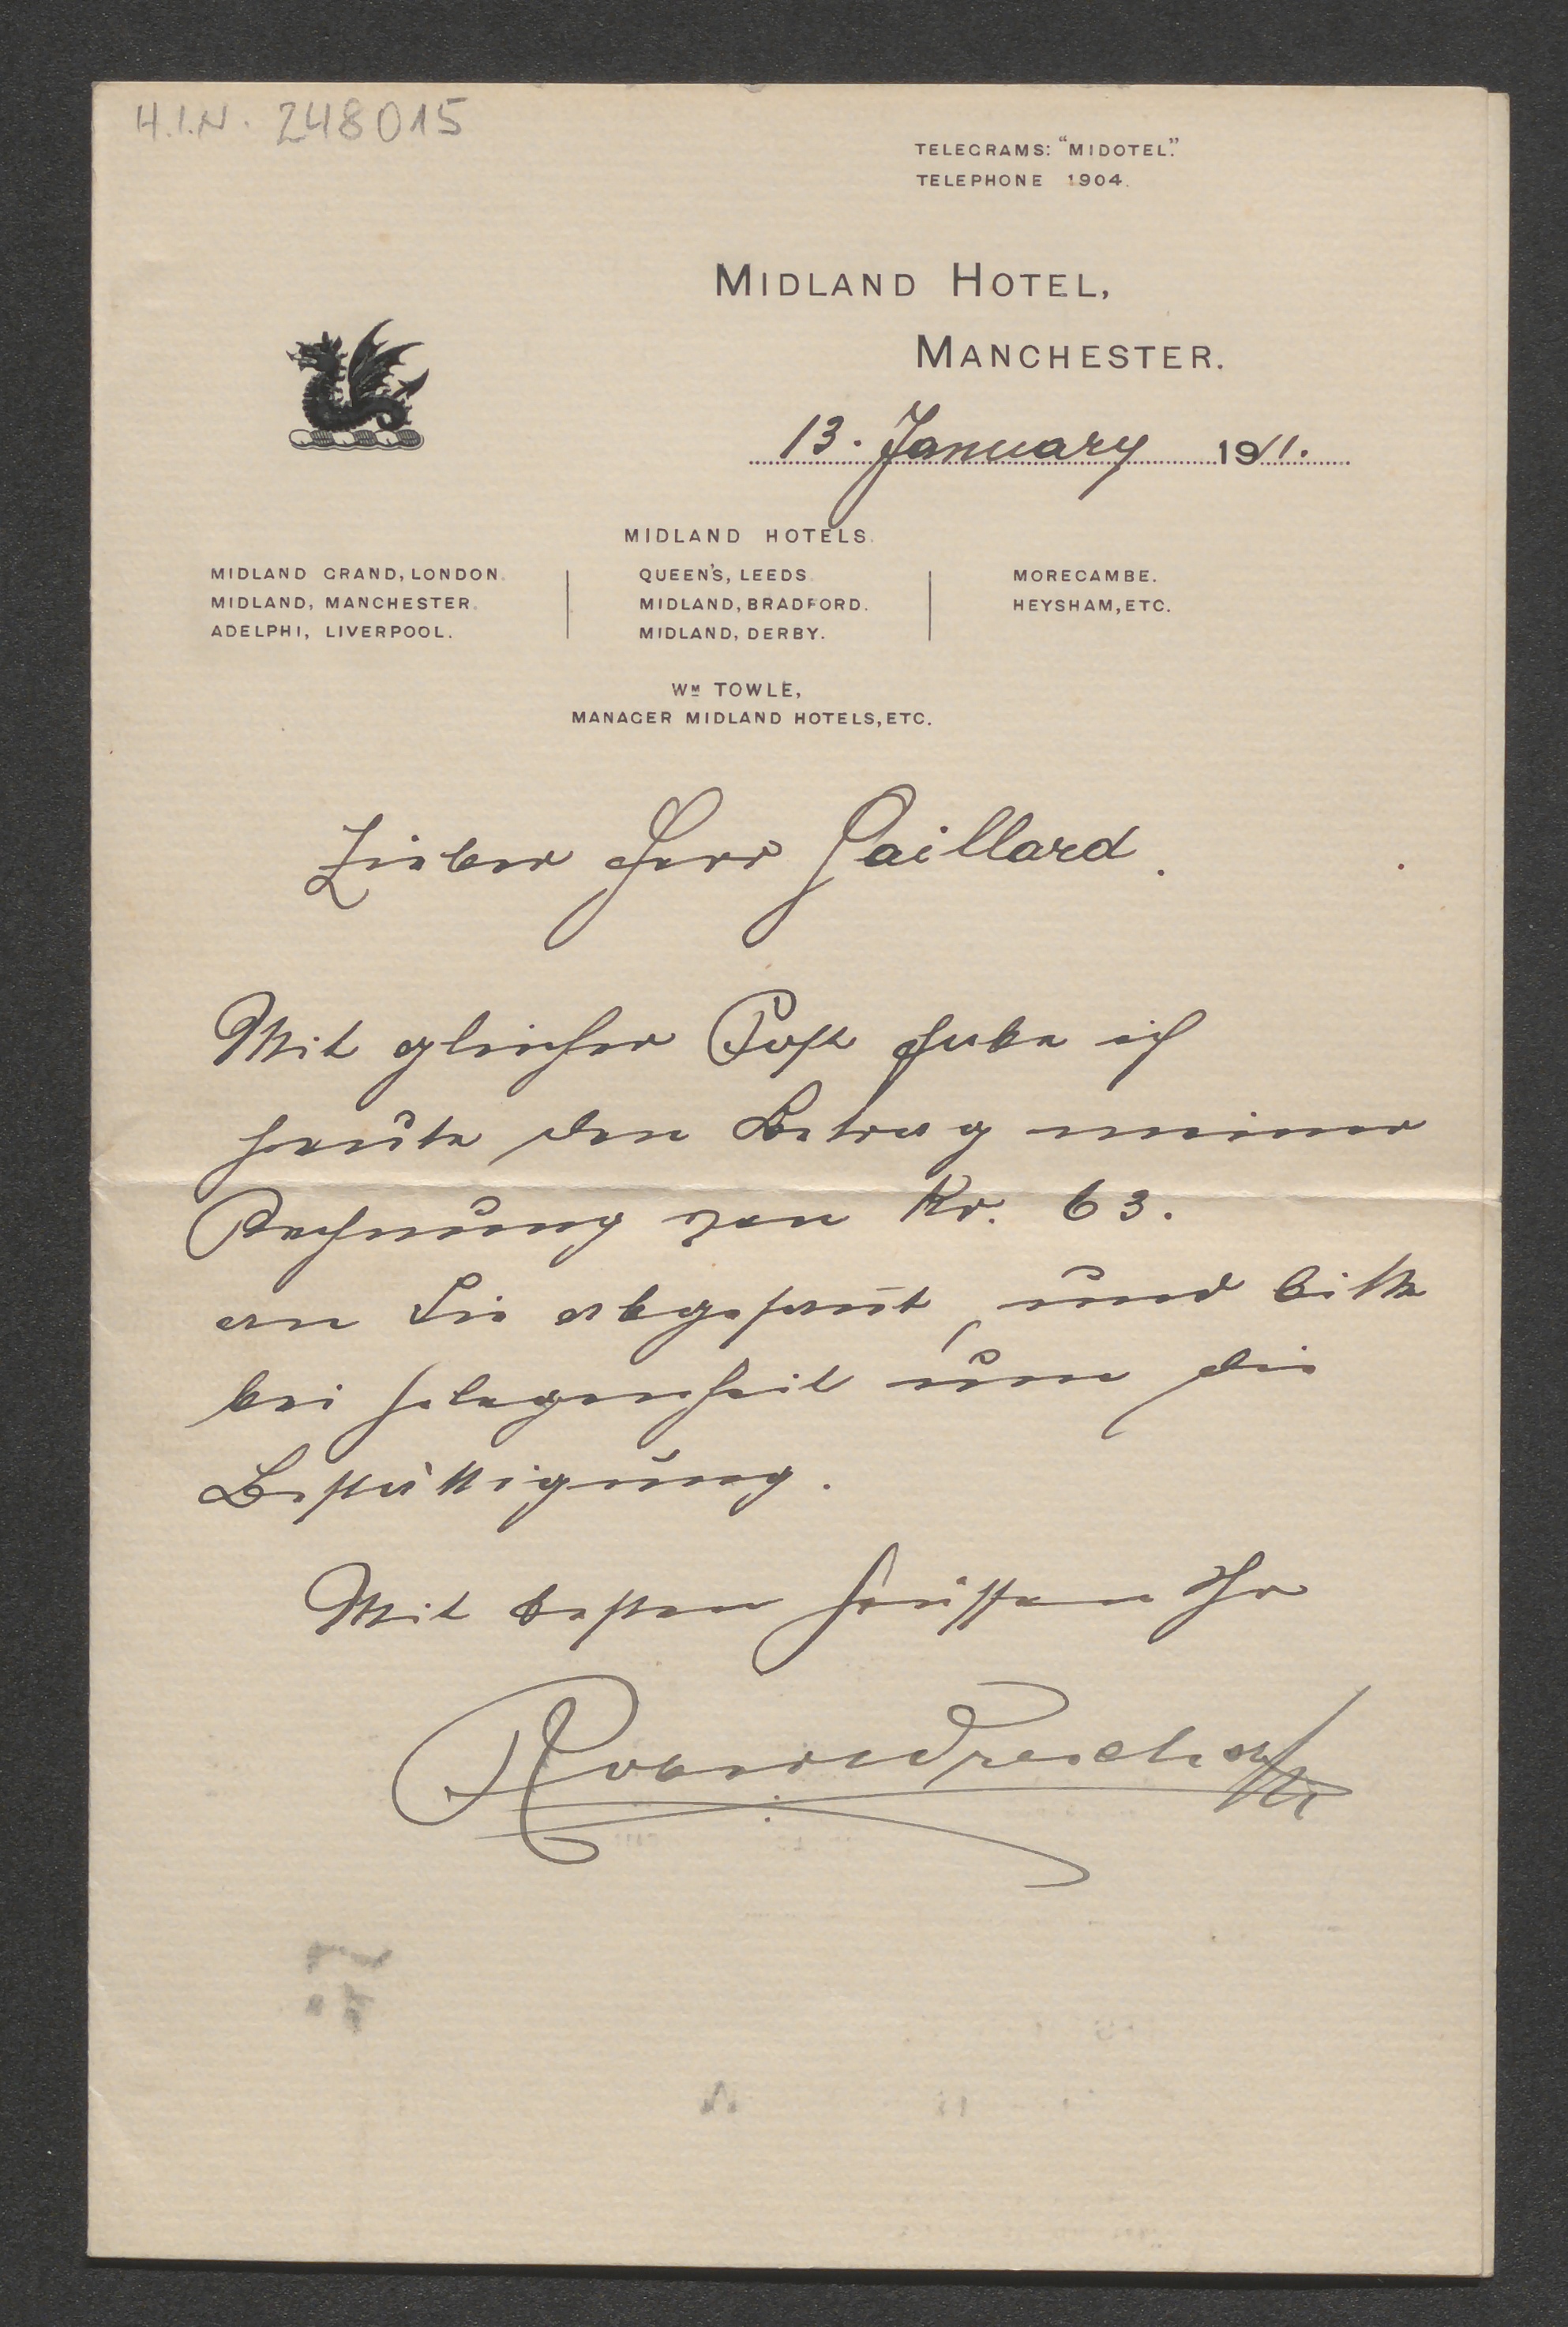 H.I.N. 248015
TELEGRAMS: "MIDOTEL."
TELEPHONE 1904.
MIDLAND HOTEL,
MANCHESTER.
13. January 1911.
MIDLAND HOTELS.
MIDLAND GRAND, LONDON.
MIDLAND, MANCHESTER.
ADELPHI, LIVERPOOL.
QUEEN'S, LEEDS.
MIDLAND, BRADFORD.
MIDLAND, DERBY.
MORECAMBE.
HEYSHAM, ETC.
WM TOWLE,
MANAGER MIDLAND HOTELS, ETC.
Lieber Herr Gaillard.
Mit gleicher Post habe ich
heute den Betrag meiner
Rechnung von Kr. 63.
an Sie abgesant, und bitte
bei Gelegenheit um die
Bestättigung.
Mit besten Grüssen Ihr